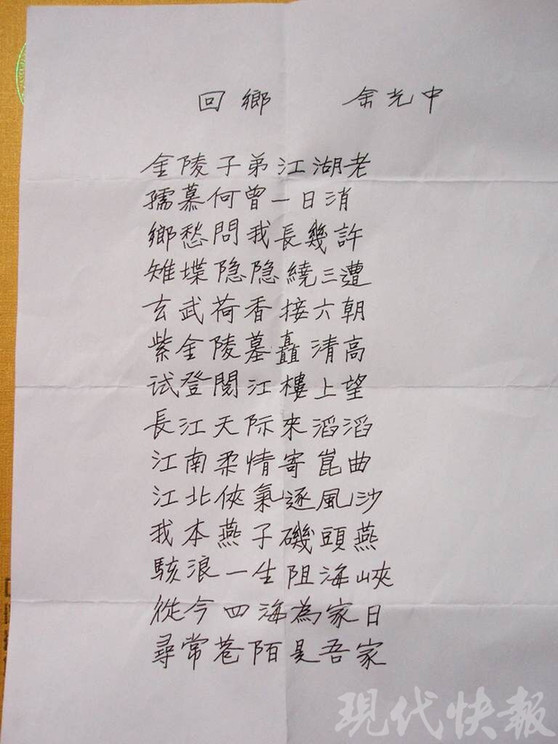 回鄉 余光中
金陵子弟江湖老
孺慕何曾一日消
鄉愁問我長幾許
雉堞隐隐繞三遭
玄武荷香接六朝
紫金陵墓矗清高
试登閱江樓上望
長江天际來滔滔
江南柔情寄崑曲
江北俠氣逐風沙
我本燕子磯頭燕
駭浪一生阻海峽
從今四海為家日
尋常巷陌是吾家
現代快報